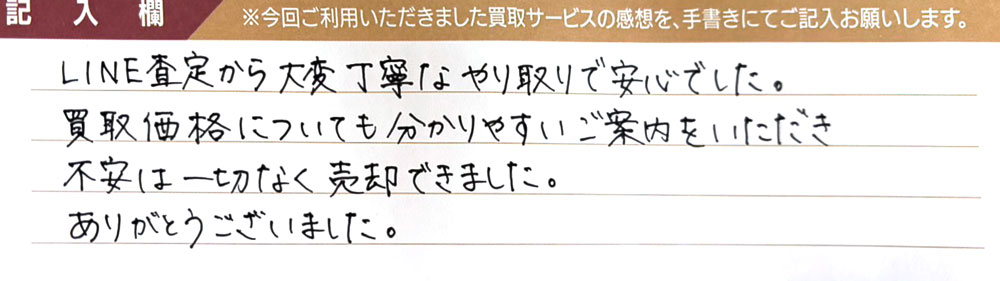 記入欄
※今回ご利用いただきました買取サービスの感想を、手書きにてご記入お願いします。
LINE査定から大変丁寧なやり取りで安心でした。
買取価格についても分かりやすいご案内をいただき
不安は一切なく売却できました。
ありがとうございました。